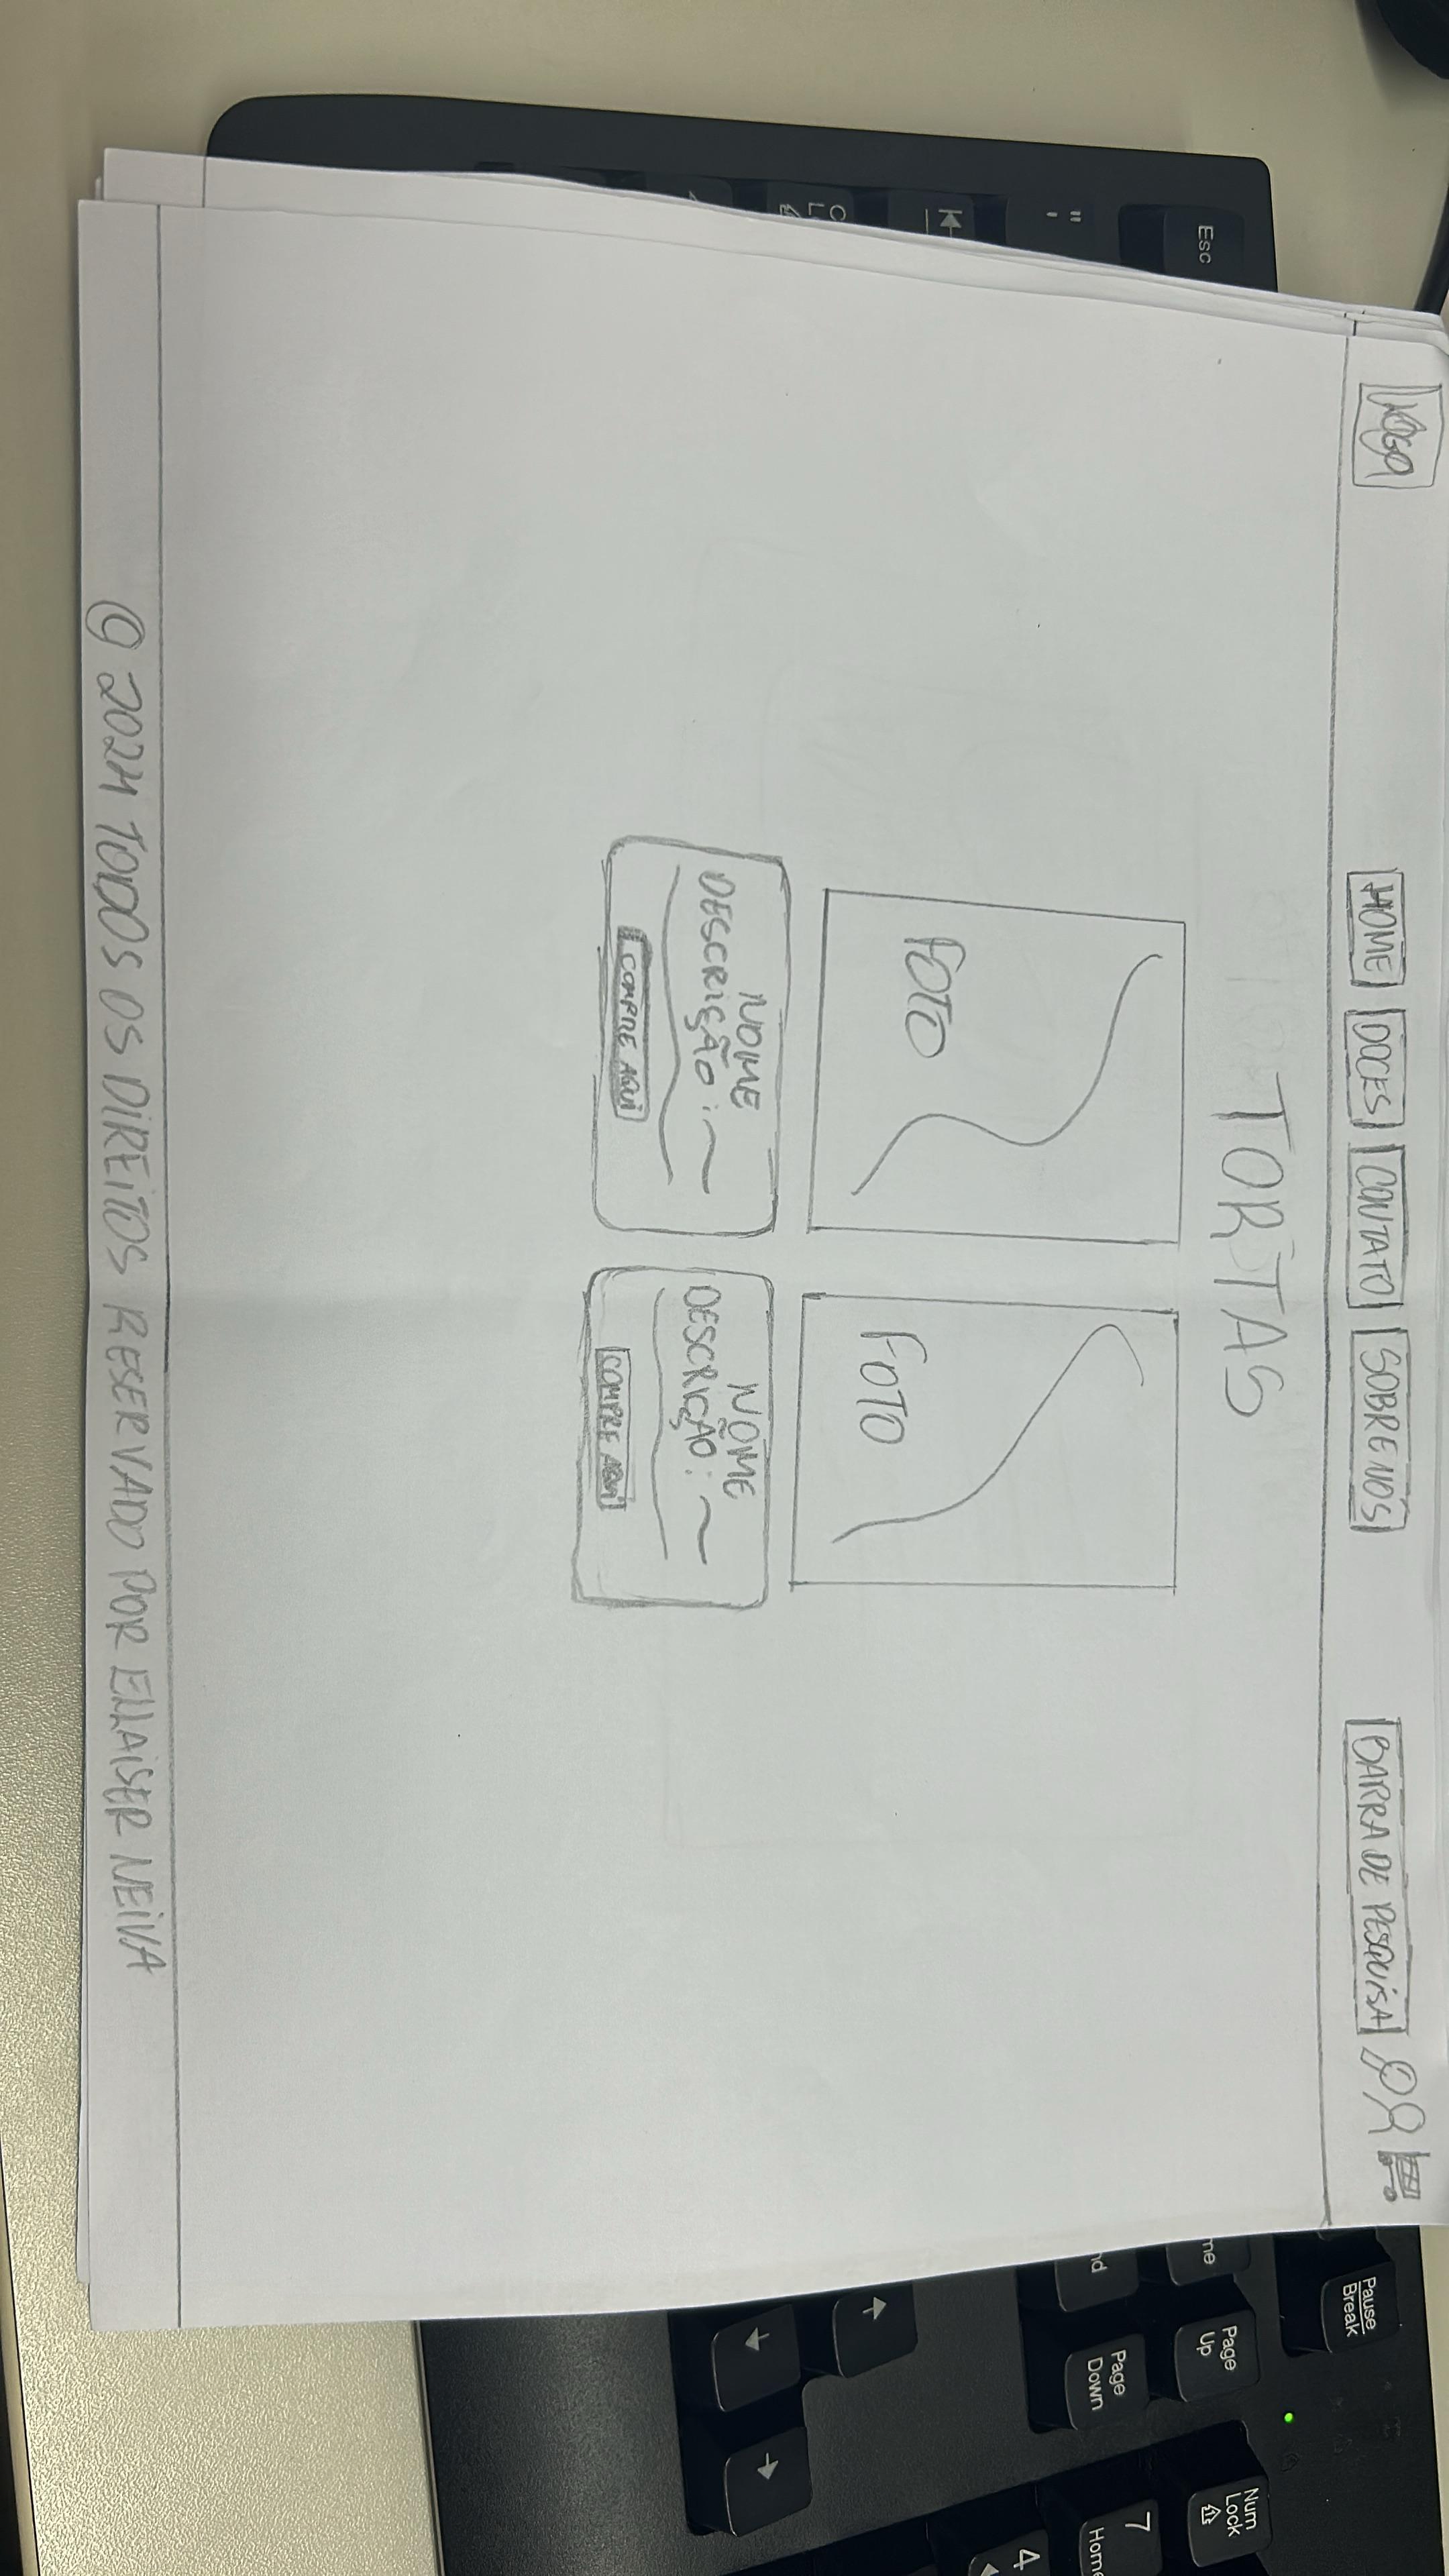 LOGO
HOME DOCES CONTATO SOBRE NÓS BARRA DE PESQUISA
TORTAS
FOTO FOTO
NOME
DESCRIÇÃO:
COMPRE AQUI
NOME
DESCRIÇÃO:
COMPRE AQUI
@ 2024 TODOS OS DIREITOS RESERVADO POR ELLAISER NEIVA
Esc
Pause
Break
Page
Up
Page
Down
Num
Lock
7
Home
4